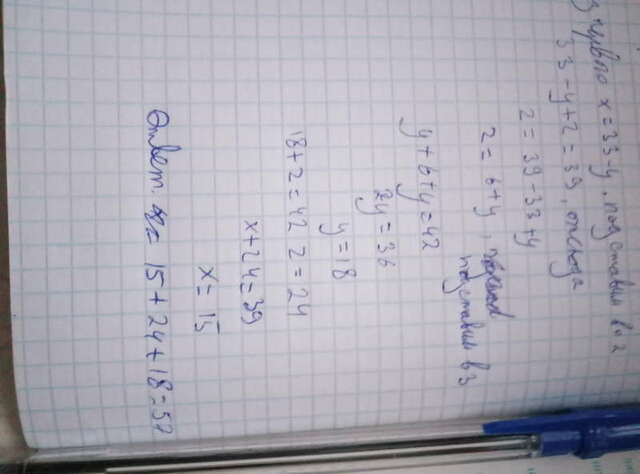 з первого x = 33-y, подставим во 2
33 - y + z = 39, отсюда
z = 39 - 33 + y
z = 6 + y, подставим в 3
y + 6 + y = 42
2y = 36
y = 18
18 + z = 42 z = 24
x + 24 = 39
x = 15
Ответ: = 15 + 24 + 18 = 57